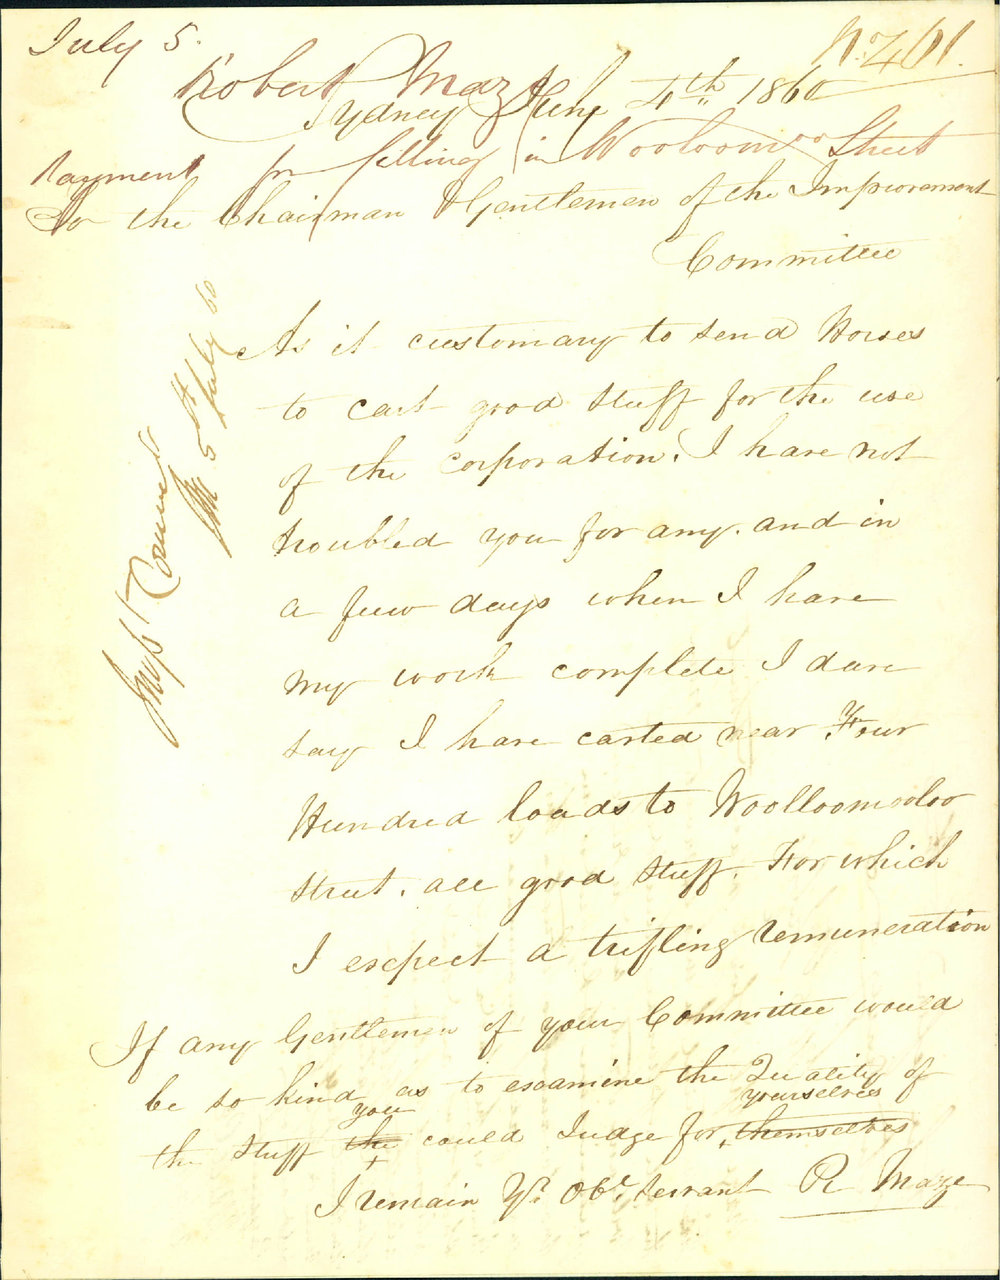 July 5.
No. 461.
Robert Maze
Sydney July 4th 1860
Payment for filling in Wooloomoo Street
To the Chairman & Gentlemen of the Improvement
Committee
As it customary to send Horses
to cart good stuff for the use
of the corporation. I have not
troubled you for any. and in
a fuw days when I have
my work complete I dare
say I have carted near Four
Hundred loads to Woolloomooloo
Street. all good stuff. For which
I expect a trifling remuneration
If any Gentlemen of your Committee would
be so kind as to examine the Quality of
the stuff the you could Judge for themselves yourselves
I remain Yr. Obt. servant R Maze
5th July 60